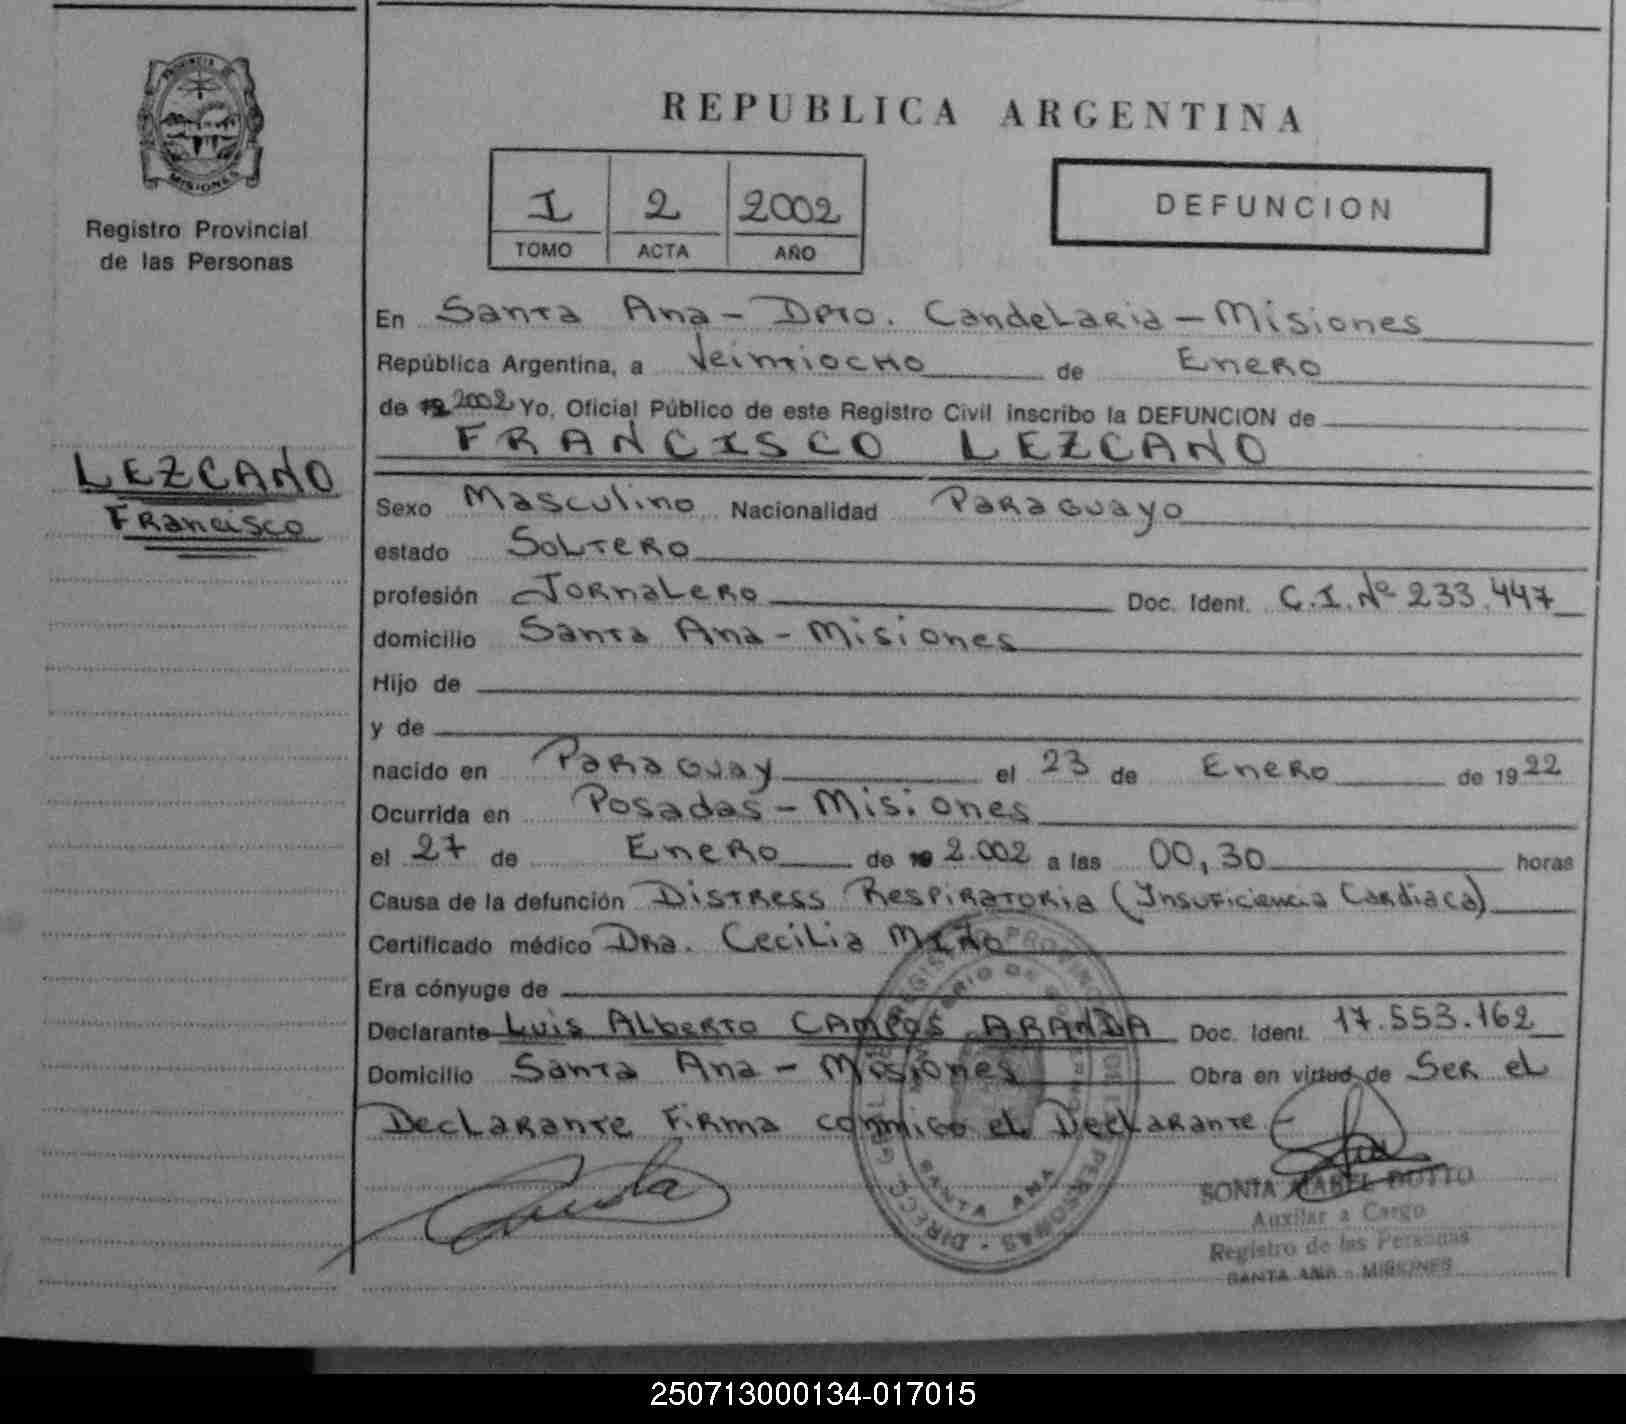 PROVINCIA DE
MISIONES
Registro Provincial
de las Personas
REPUBLICA ARGENTINA
I 2 2002
TOMO ACTA AÑO
DEFUNCION
En Santa Ana - Dpto. Candelaria - Misiones
República Argentina, a Veintiocho de Enero
de 19 2002 Yo, Oficial Público de este Registro Civil inscribo la DEFUNCION de
FRANCISCO LEZCANO
LEZCANO
Francisco
Sexo Masculino Nacionalidad Paraguayo
estado Soltero
profesión Jornalero Doc. Ident. C.I. Nº 233.447
domicilio Santa Ana - Misiones
Hijo de
y de
nacido en Paraguay el 23 de Enero de 1922
Ocurrida en Posadas - Misiones
el 27 de Enero de 19 2.002 a las 00,30 horas
Causa de la defunción Distress Respiratoria (Insuficiencia Cardiaca)
Certificado médico Dra. Cecilia Miño
Era cónyuge de
Declarante Luis Alberto CAMPOS ARANDA Doc. Ident. 17.553.162
Domicilio Santa Ana - Misiones Obra en virtud de Ser el
Declarante Firma conmigo el Declarante
SANTA ANA
SONIA MABEL DOTTO
Auxiliar a Cargo
Registro de las Personas
SANTA ANA - MISIONES
250713000134-017015